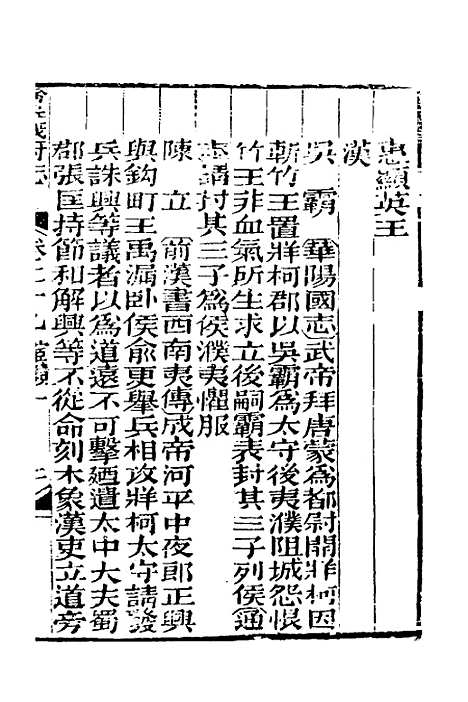 忠顯英王
漢
吳　霸　華陽國志武帝拜唐蒙爲都尉開牂柯因
斬竹王置牂柯郡以吳霸爲太守後夷濮阻城怨恨
竹王非血氣所生求立後嗣霸表封其三子列侯通
志霸封其三子爲侯濮夷懼服
陳　立　前漢書西南夷傳成帝河平中夜郎王興
與鉤町王禹漏卧侯俞更舉兵相攻牂柯太守請發
兵誅興等議者以爲道遠不可擊廼遣太中大夫蜀
郡張匡持節和解興等不從命刻木象漢吏立道旁
卷二十九